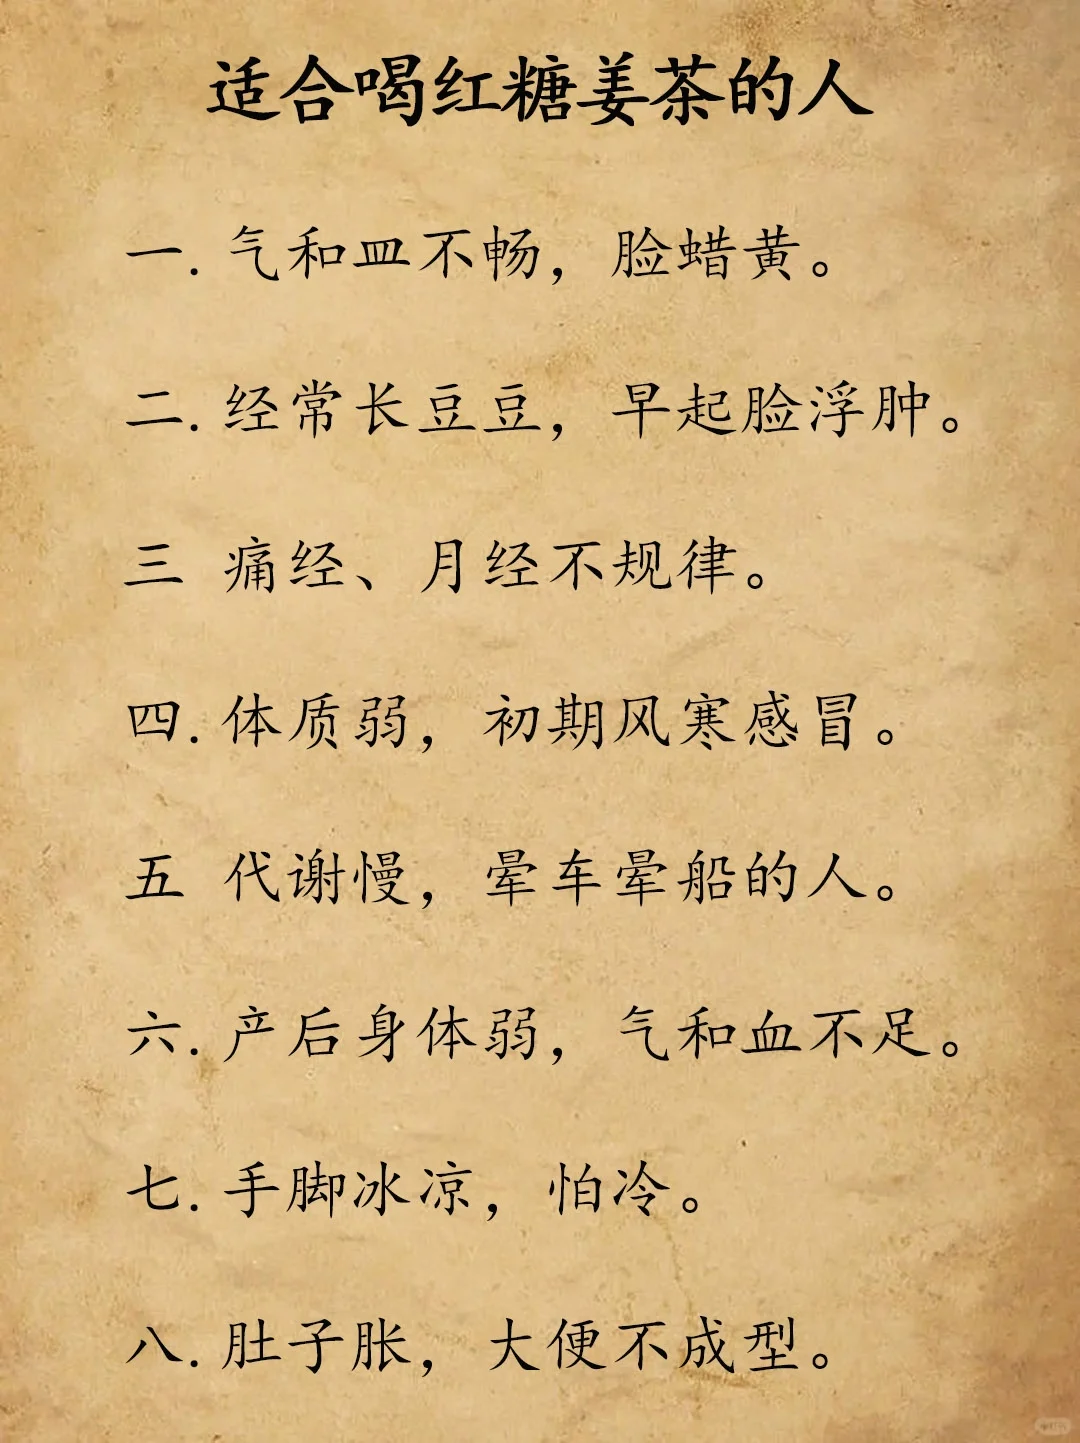 适合喝红糖姜茶的人
一. 气和皿不畅，脸蜡黄。
二. 经常长豆豆，早起脸浮肿。
三 痛经、月经不规律。
四. 体质弱，初期风寒感冒。
五 代谢慢，晕车晕船的人。
六. 产后身体弱，气和血不足。
七. 手脚冰凉，怕冷。
八. 肚子胀，大便不成型。